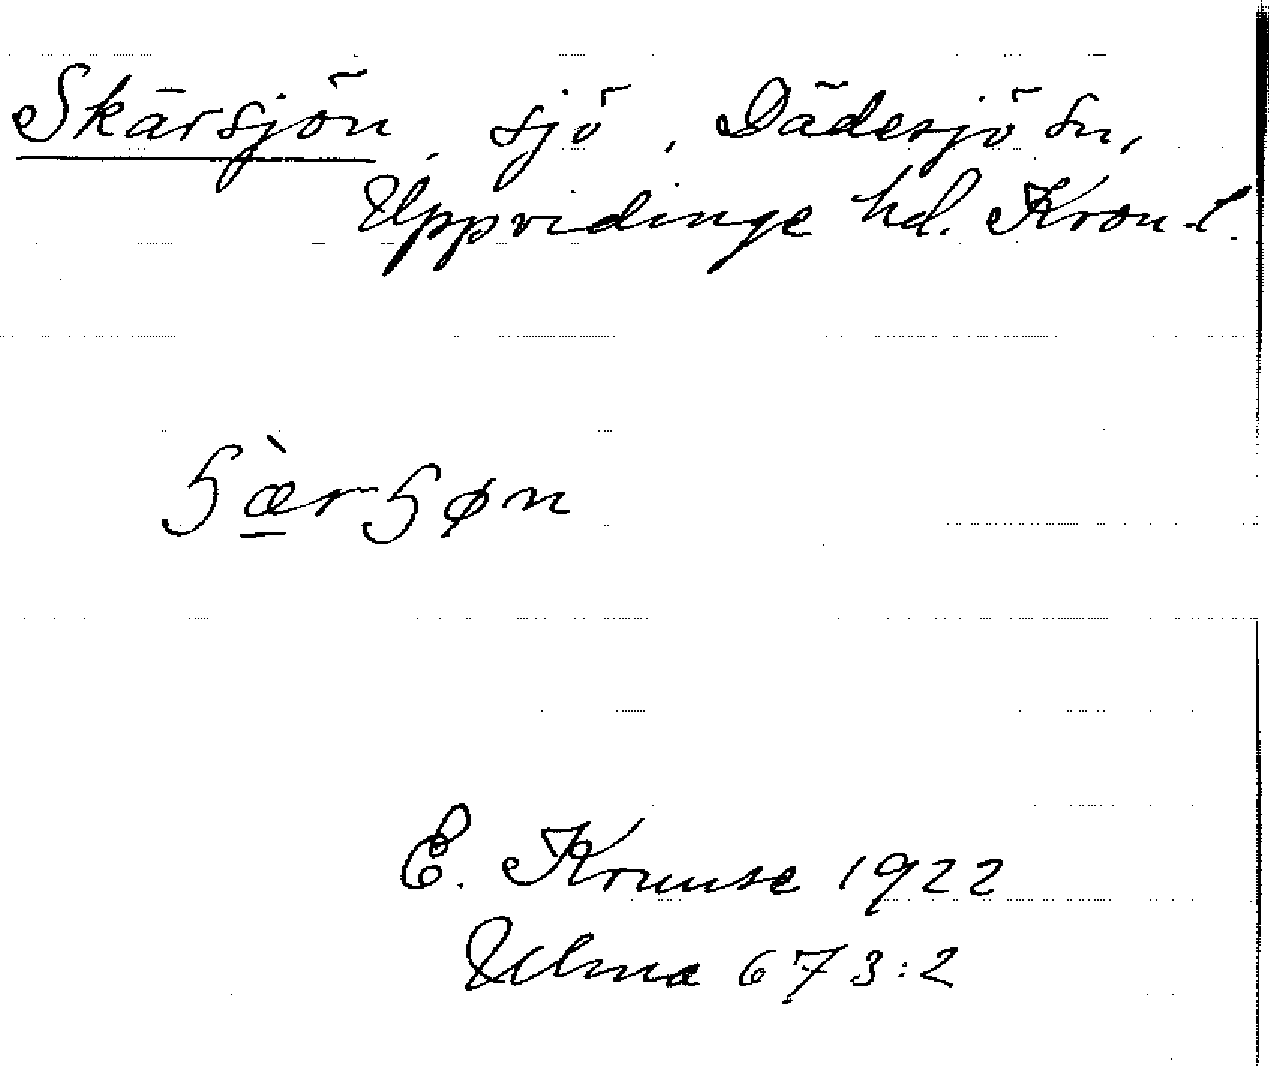 Skärsjön, sjö, Dädesjö sn,
Uppvidinge hd. Kron. l.
ꞔæ̠̀rꞔøn
E. Kruuse 1922
Ulma 673:2